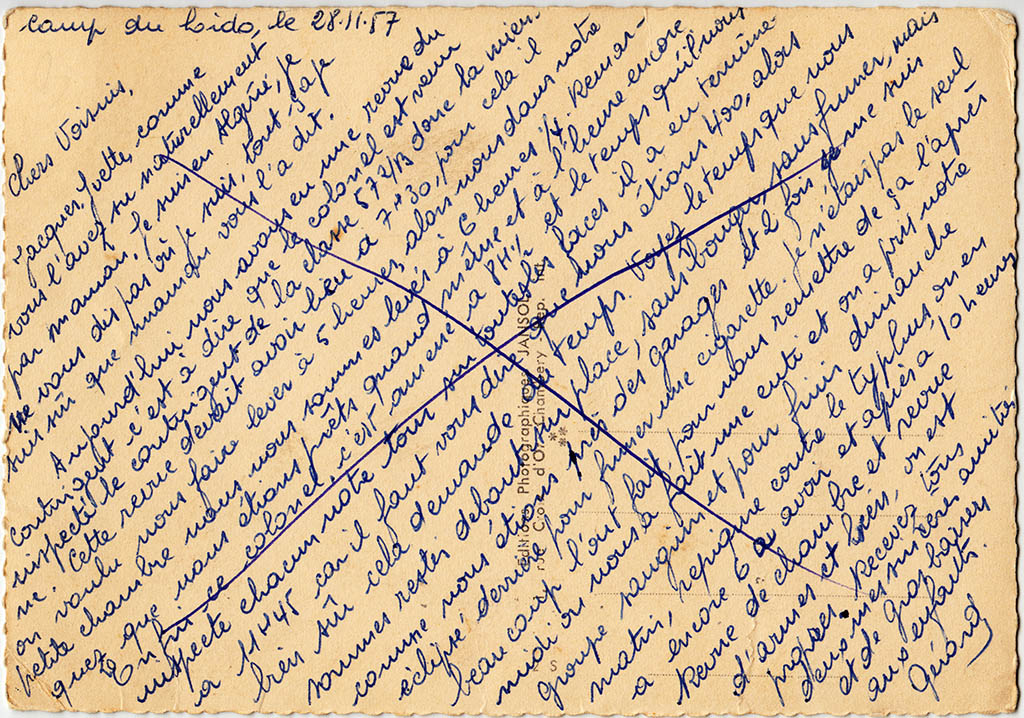 camp du Lido, le 28.11.57
Chers Voisins,
Jacques, Yvette, comme
vous l'avez su naturellement
par maman, je suis en Algérie, je
ne vous dis pas où je suis, tout ça je
suis sûr que maman vous l'a dit.
Aujourd'hui nous avons eu une revue du
contingent c'est à dire que le colonel est venu
inspecté le contingent de la classe 57 2/B donc la mien-
ne. Cette revue devait avoir lieu à 7H30, pour cela il
on voulu nous faire lever à 5 heures, alors nous dans notre
petite chambre nous nous sommes levés à 6 heures 1/4. Remar-
quez que nous étions prêts quand même et à l'heure encore
Enfin ce colonel, c'est amené à 8H1/2 et le temps qu'il nous
inspecté chacun notre tour sur toutes les faces il a en terminé
à 11H45 car il faut vous dire que nous étions 400, alors
bien sûr cela demande du temps. Voyez le temps que nous
sommes restés debout sur place, sans bouger, sans fumer, mais
comme nous étions près des garages et 2 fois je me suis
éclipsé derrière pour fumer une cigarette. Je n'étais pas le seul
beaucoup l'ont fait pour nous remettre de ça l'après
midi on nous a fait une cuti et on a pris notre
groupe sanguin et pour finir dimanche
matin, repiqûre contre le typhus, on en
a encore 6 à avoir et après à 10 heures
Revue de chambre et revue
d'armes et bien, on est
propres. Recevez tous
deux mes sincères amitiés
et de gros baisers
aux enfants.
Gérard
Editions Photographiques JANSOL
Chambéry